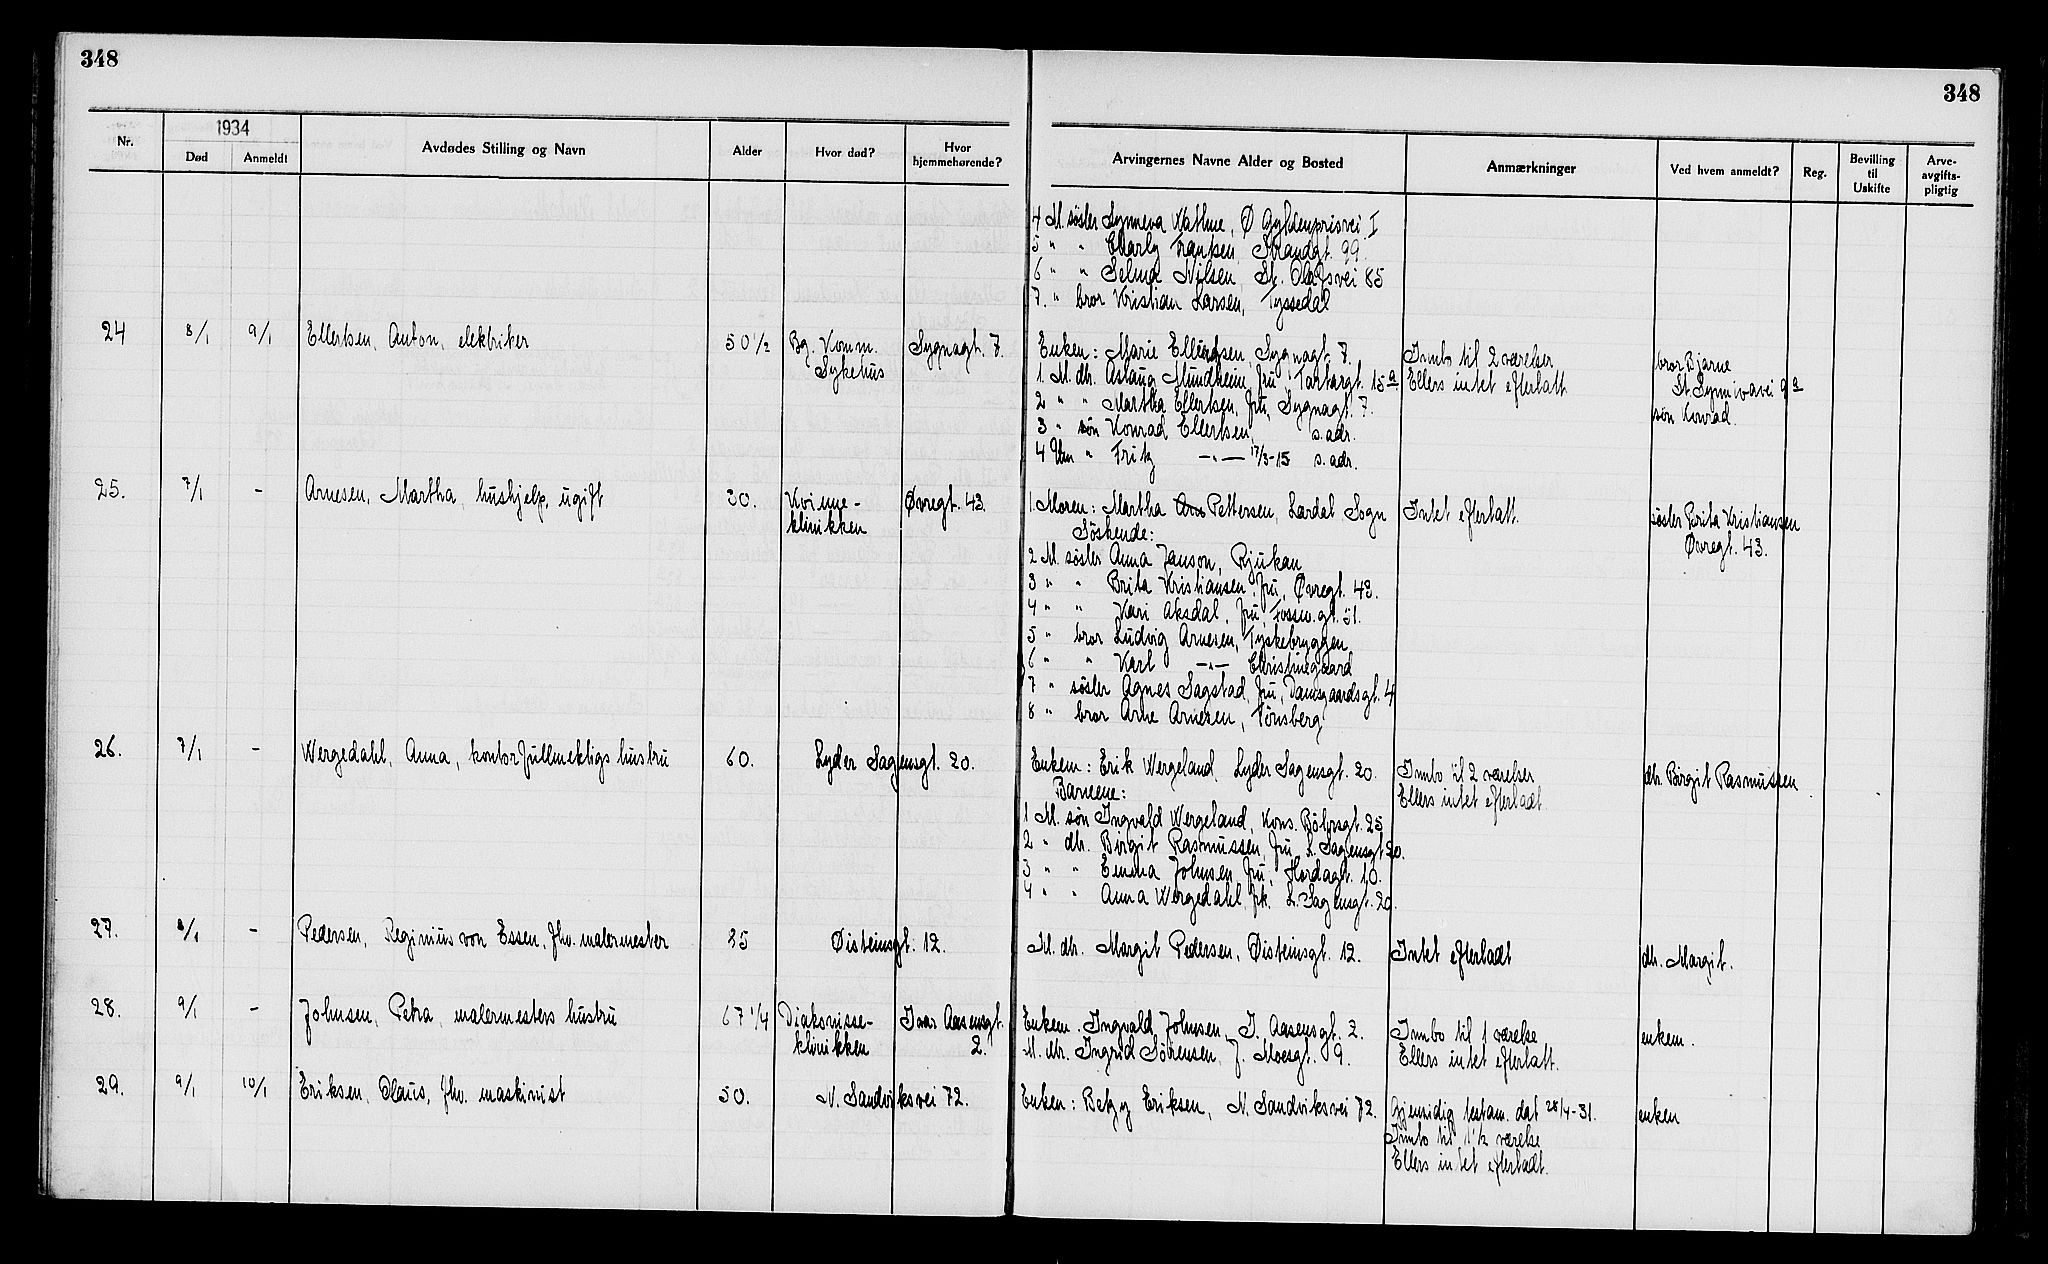 348
348
Nr.
1934
Død
Anmeldt
Avdødes Stilling og Navn
Alder
Hvor død?
Hvor hjemmehørende?
Arvingernes Navne Alder og Bosted
Anmærkninger
Ved hvem anmeldt?
Reg.
Bevilling til Uskifte
Arve-avgifts-pligtig
4 M. søster Synneva, Ø Gyldenprisvei I
5 " " Charly Frantsen, Strandgt. 99.
6 " " Selma Nilsen, St. Olafsvei 85
7. " bror Kristian Larsen, Tyssedal
24 8/1 9/1 Ellertsen, Anton, elektriker 50 1/2 Bg. Komm. Sygnagt. 7. Enken: Marie Ellertsen, Sygnagt. 7. Innbo til 2 værelser bror Bjarne
Sykehus 1. M. dtr. Aslaug Mundheim, fru, Tartargt. 15a Ellers intet efterlatt St. Synnivavei 9a
2 " " Martha Ellertsen, fru, Sygnagt. 7. søn Konrad.
3 " søn Konrad Ellertsen, s. adr.
4 Um " Fritz -"- 17/3-15 s. adr.
25. 7/1 - Arnesen, Martha, hushjelp, ugift 30. Kvinne- Øvregt. 43. 1. Moren: Martha Pettersen, Lærdal, Sogn Intet efterlatt. søster Brita Kristiansen
klinikken Søskende: Øvregt. 43.
2 M. søster Anna Janson, Rjukan
3 " " Brita Kristiansen, fru, Øvregt. 43.
4 " " Kari Aksdal, fru, Fossw.gt. 51.
5 " bror Ludvig Arnesen, Tyskebryggen
6 " " Karl -"- Christinegaard
7 " søster Agnes Sagstad, fru, Damsgaardsgt. 4
8 " bror Arne Arnesen, Tønsberg
26. 7/1 - Wergedahl, Anna, kontorfullmektigs hustru 60. Lyder Sagensgt. 20. Enkem: Erik Wergeland, Lyder Sagensgt. 20. Innbo til 2 værelser dtr. Birgit Rasmussen
Barnene: Ellers intet efterladt
1 M. søn Ingvald Wergeland, Kons. Bøhrsgt. 25
2 " dtr. Birgit Rasmussen, fru, L. Sagensgt 20.
3 " " Emma Johnsen, fru, Hordagt. 10.
4 " " Anna Wergedahl, frk. L. Sagensgt. 20.
27. 8/1 - Pedersen, Reginius von Essen, fhv. malermester 85 Øisteinsgt. 12. M. dtr. Margit Pedersen, Øisteinsgt. 12. Intet efterladt dtr. Margit.
28. 9/1 - Johnsen, Petra, malermesters hustru 67 1/4 Diakonisse- Ivar Aasensgt. Enkem. Ingvald Johnsen, I. Aasensgt. 2. Innbo til 1 værelse enkem.
klinikken 2. M. dtr. Ingrid Sørensen, J. Moesgt. 9. Ellers intet efterlatt.
29. 9/1 10/1 Eriksen, Olaus, fhv. maskinist 50. N. Sandviksvei 72. Enken: Betzy Eriksen, N. Sandviksvei 72. Gjensidig testam. dat 28/4-31. enken
Innbo til 1 1/2 værelse
Ellers intet efterladt.